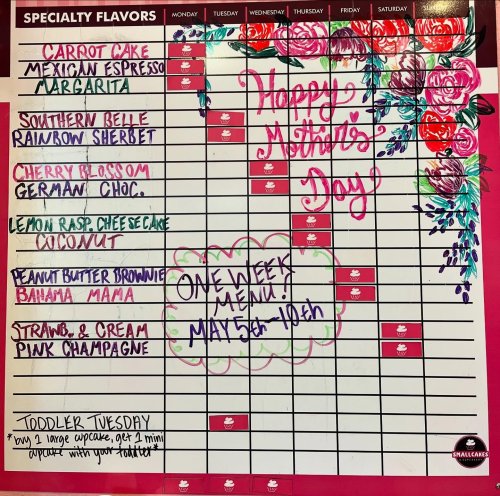 SPECIALTY FLAVORS MONDAY TUESDAY WEDNESDAY THURSDAY FRIDAY SATURDAY
CARROT CAKE
MEXICAN ESPRESSO
MARGARITA
Happy
Mother's
Day
SOUTHERN BELLE
RAINBOW SHERBET
CHERRY BLOSSOM
GERMAN CHOC.
LEMON RASP. CHEESECAKE
COCONUT
ONE WEEK
MENU!
MAY 5th-10th
PEANUT BUTTER BROWNIE
BAHAMA MAMA
STRAWB. & CREAM
PINK CHAMPAGNE
TODDLER TUESDAY
*buy 1 large cupcake, get 1 mini
cupcake with your toddler*
SMALLCAKES